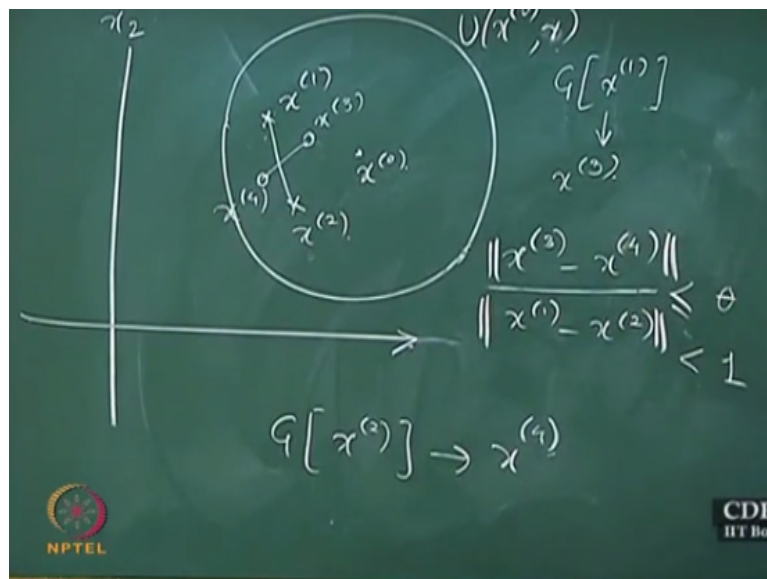 x₂
U(x⁽⁰⁾, r)
x⁽¹⁾
x⁽³⁾
x⁽⁰⁾
x⁽⁴⁾
x⁽²⁾
G[x⁽¹⁾]
↓
x⁽³⁾
‖x⁽³⁾ - x⁽⁴⁾‖
‖x⁽¹⁾ - x⁽²⁾‖
≤ θ
< 1
G[x⁽²⁾] → x⁽⁴⁾
NPTEL
CDE
IIT Bo